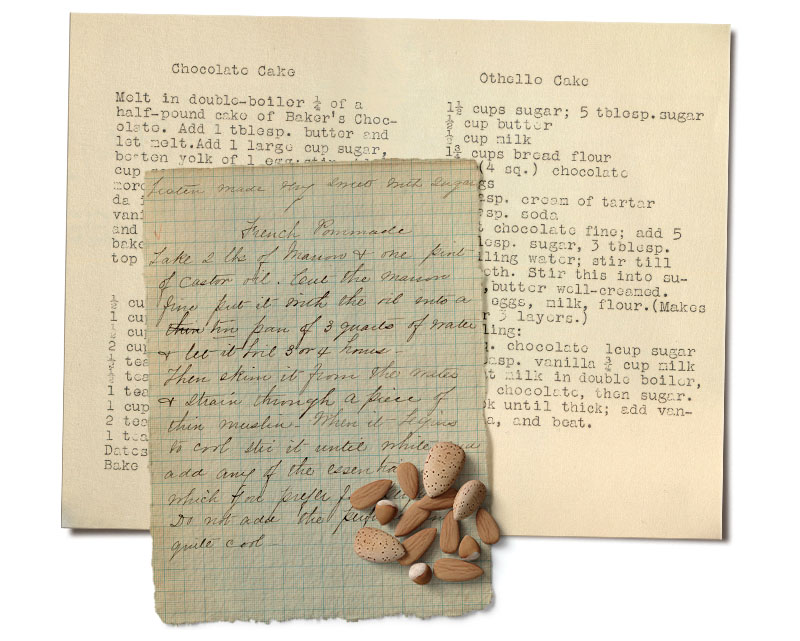 Chocolate Cake
Melt in double-boiler ¼ of a
half-pound cake of Baker's Choc-
olate. Add 1 tblesp. butter and
let melt.Add 1 large cup sugar,
beaten yolk of 1 egg;stir
cup
more
da
vani
and
bake
top
½ cu
1 cup
cup
2 cup
½ tea
½ teas
1 tea
1 cup
2 teas
1 tea
Dates
Bake
Othello Cake
1½ cups sugar; 5 tblesp.sugar
½ cup butter
½ cup milk
1¾ cups bread flour
(4 sq.) chocolate
gs
asp. cream of tartar
sp. soda
t chocolate fine; add 5
lesp. sugar, 3 tblesp.
ling water; stir till
oth. Stir this into su-
,butter well-creamed.
eggs, milk, flour.(Makes
r 3 layers.)
ling:
q. chocolate 1cup sugar
asp. vanilla ¾ cup milk
t milk in double boiler,
chocolate, then sugar.
ok until thick; add van-
a, and beat.
made very sweet with sugar
French Pommade
Take 2 lbs of Marrow & one pint
of Castor oil. Cut the marrow
fine put it with the oil into a
thin tin pan of 3 quarts of water
& let it boil 3 or 4 hours -
Then skim it from the water
& strain through a piece of
thin muslin - When it begins
to cool stir it until white and
add any of the essential
which you prefer for
Do not add the perfu
quite cool -